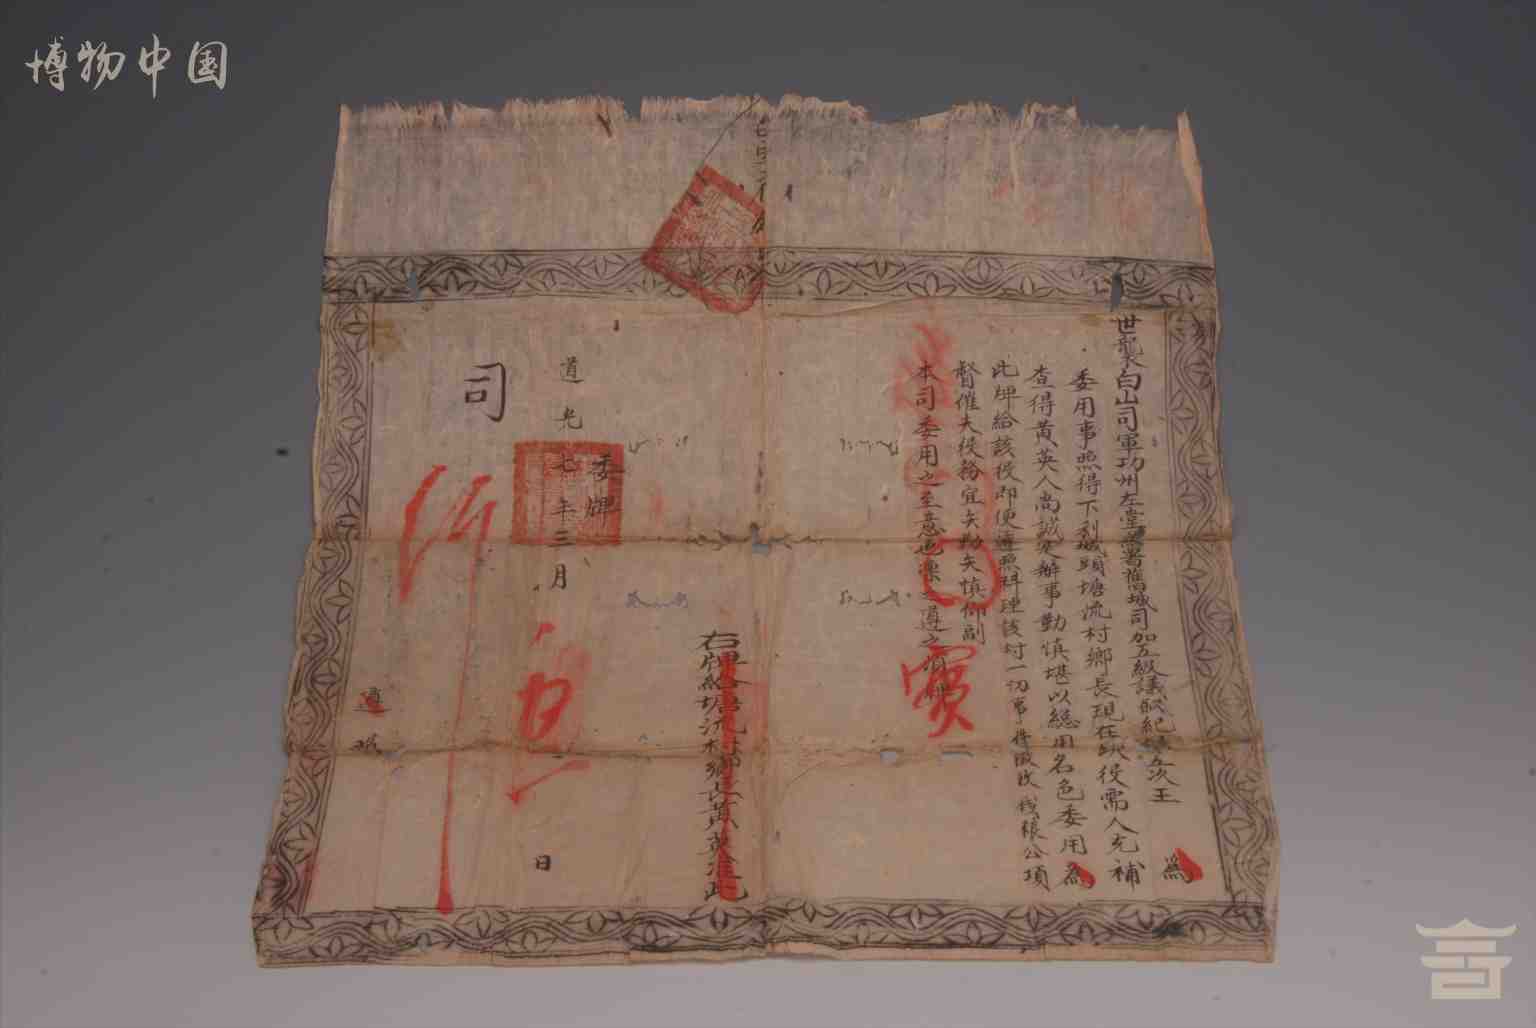 博物中国
世襲白山司軍功州左堂兼署舊城司加五級議敘紀錄五次王 為
委用事照得下利城頭塘流村鄉長現在缺役需人充補
查得黄英人尚誠实辦事勤慎堪以總用名色委用為
此牌給該役即便遵照料理該村一切事件徵收錢粮公項
督催夫役務宜矢勤矢慎仰副
本司委用之至意也凛之遵之須牌
寳
右牌給塘流村鄉長黄英准此
委牌
道光七年三月 日
司
行
遵